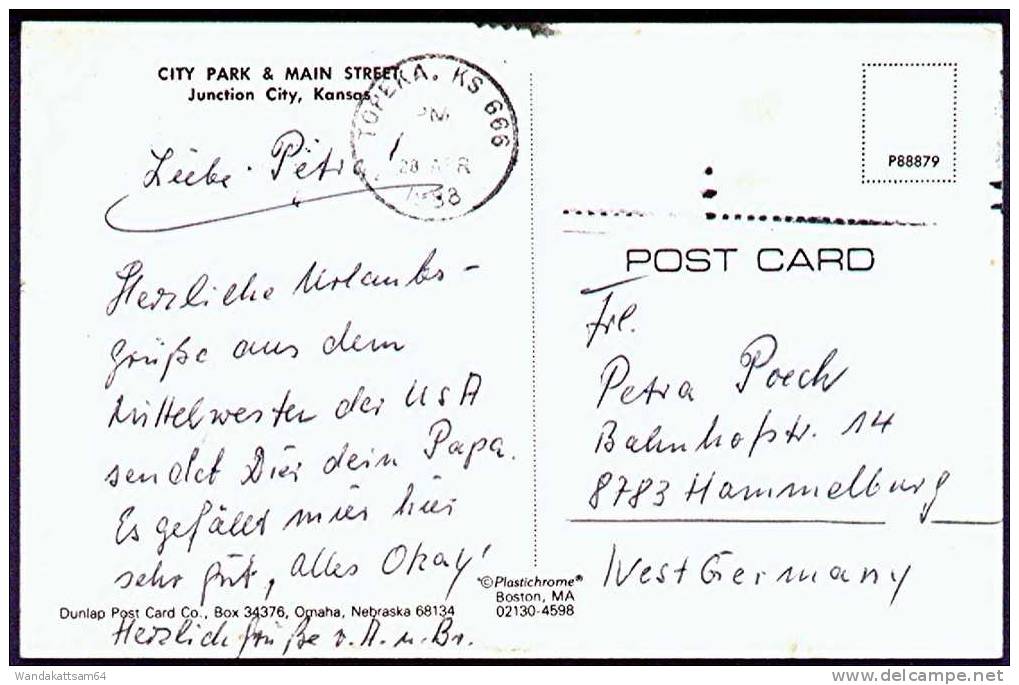 CITY PARK & MAIN STREET
Junction City, Kansas
TOPEKA, KS 666
PM
28 APR
Liebe Petra!
Herzliche Urlaubs-
grüße aus dem
Mittelwesten der USA
sendet Dir dein Papa.
Es gefällt mir hier
sehr gut, alles Okay!
Herzlich Grüße v. A. u. Br.
Dunlap Post Card Co., Box 34376, Omaha, Nebraska 68134
©Plastichrome®
Boston, MA
02130-4598
P88879
POST CARD
Frl.
Petra Poech
Bahnhofstr. 14
8783 Hammelburg
West Germany
Wandakattsam64
delcampe.net